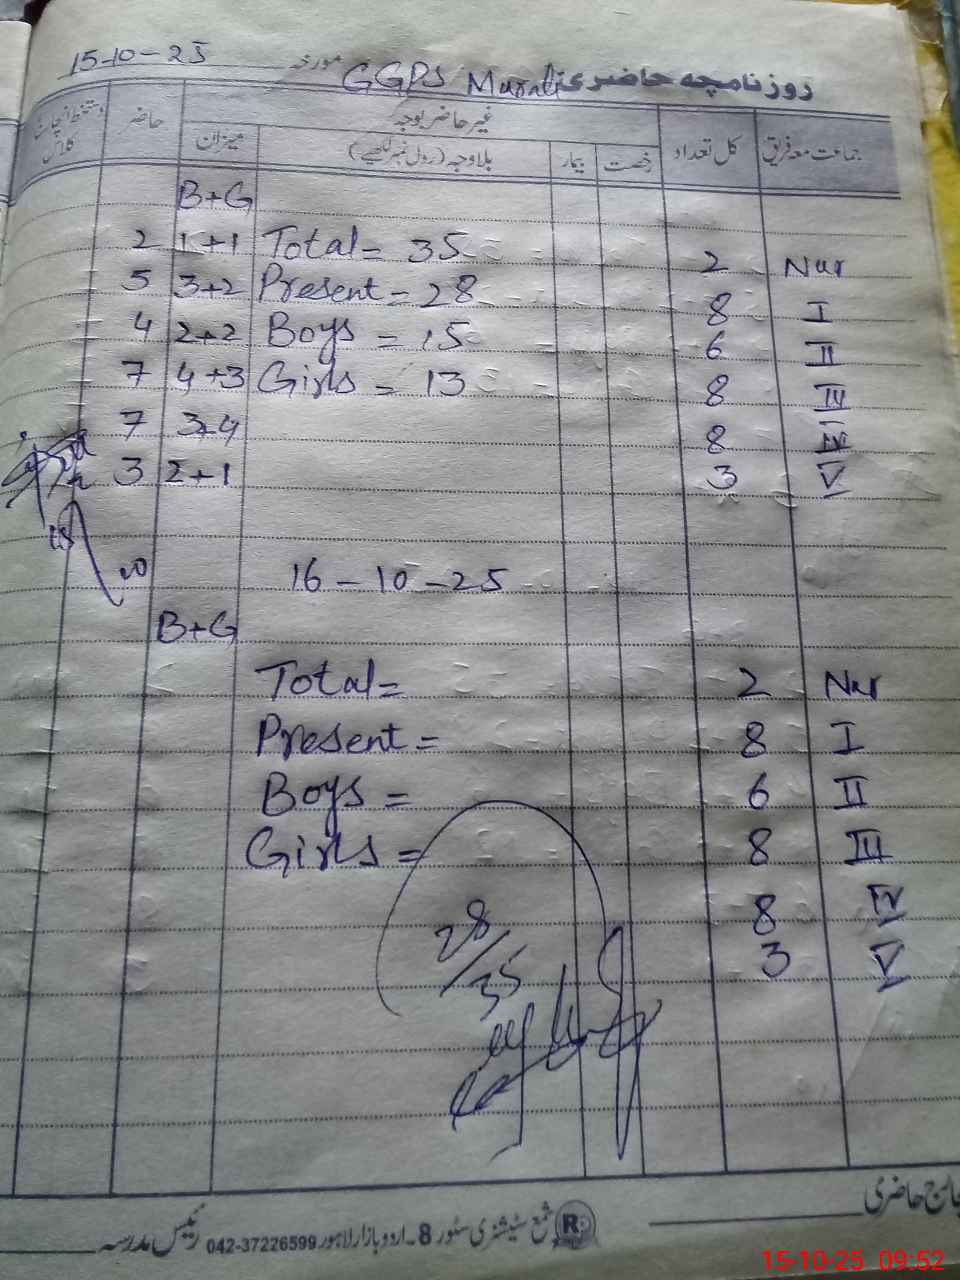 15-10-25 مورخہ GGPS Murali روزنامچہ حاضری
جماعت معہ فریق کل تعداد غیر حاضر بوجہ حاضر دستخط انچارج کلاس
رخصت بیمار بلاوجہ (رول نمبر لکھیے) میزان
B+G
2 1+1 Total = 35 2 Nur
5 3+2 Present = 28 8 I
4 2+2 Boys = 15 6 II
7 4+3 Girls = 13 8 III
7 3+4 8 IV
3 2+1 3 V
16-10-25
B+G
Total = 2 Nur
Present = 8 I
Boys = 6 II
Girls = 8 III
8 IV
3 V
28/35
انچارج حاضری
رئیس مدرسہ شمع سٹیشنری سٹور 8۔اردو بازار لاہور 042-37226599 R
15-10-25 09:52